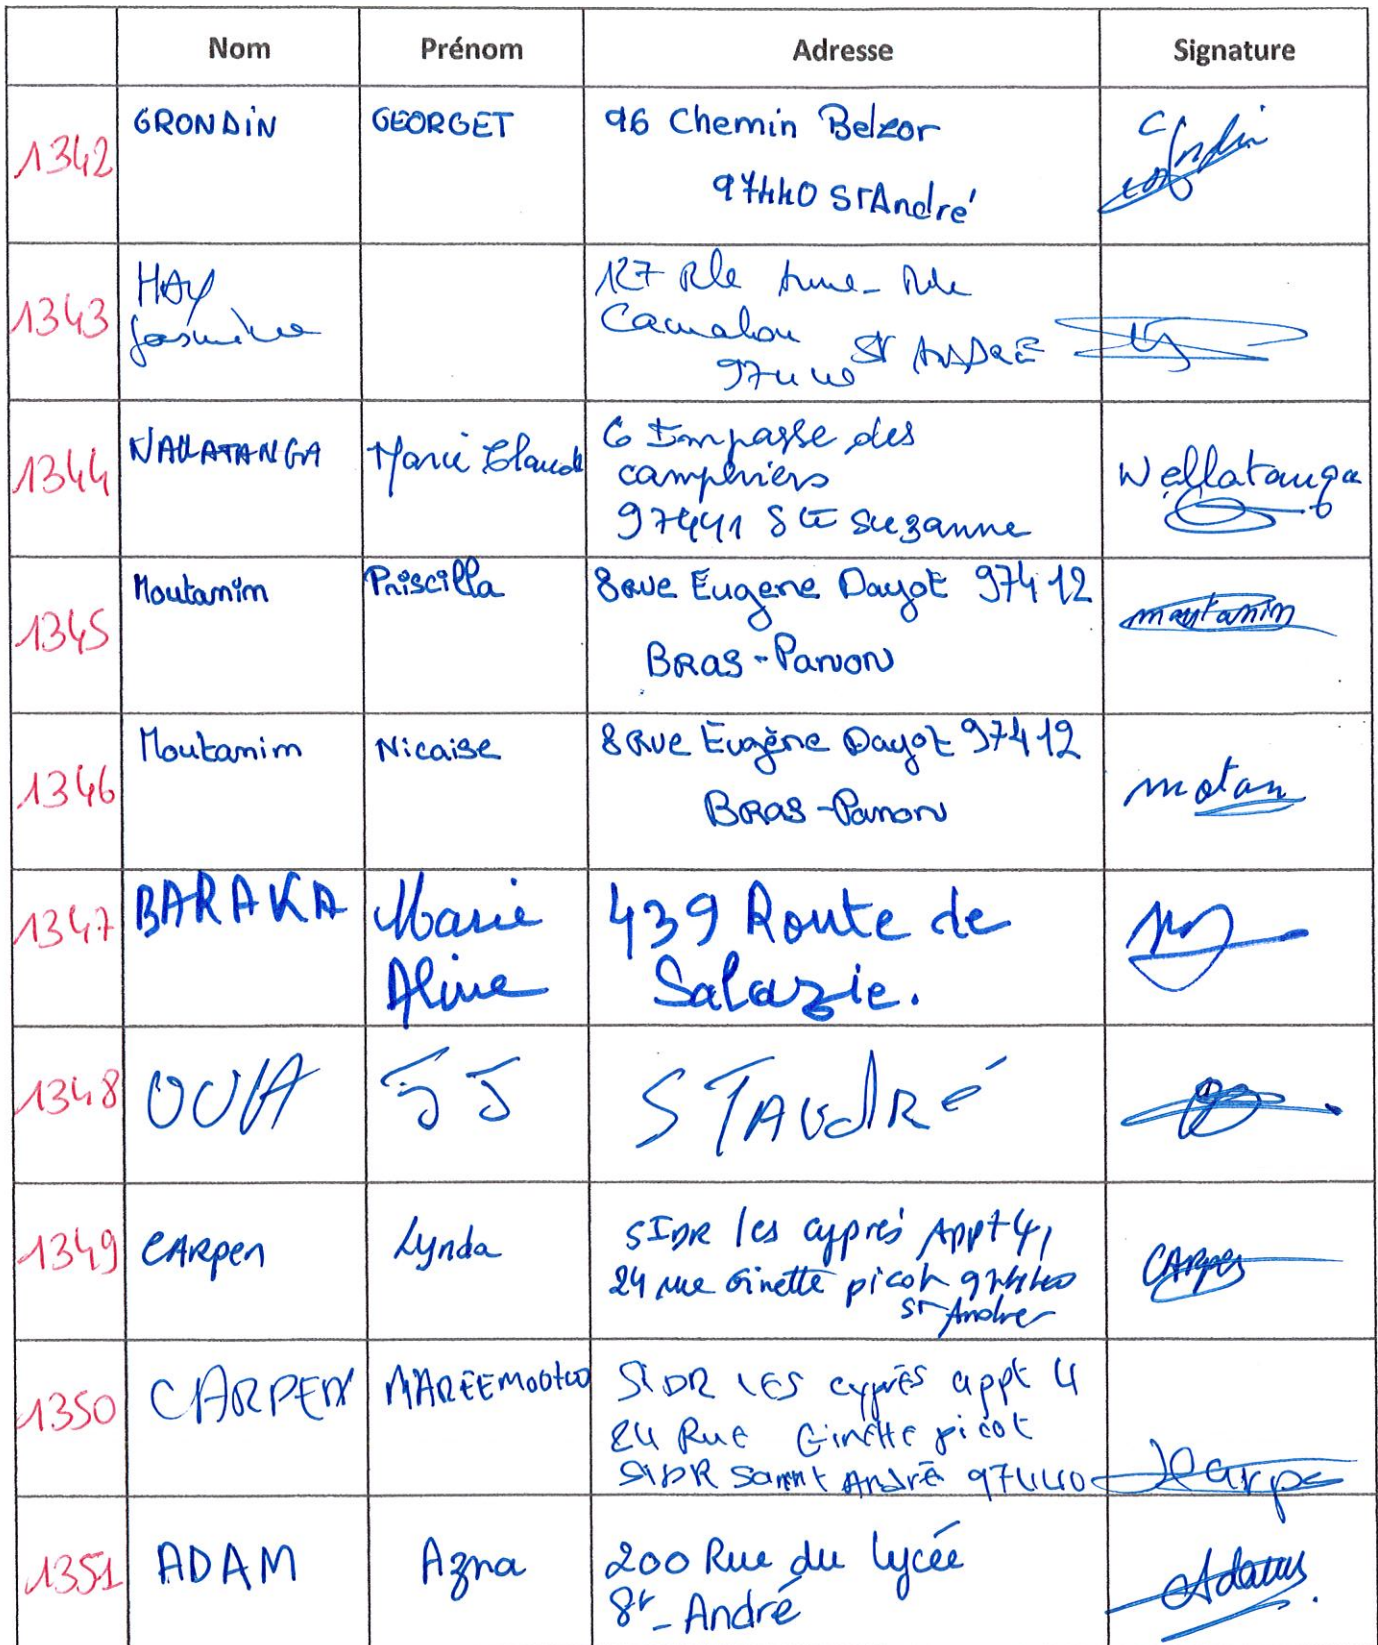 Nom Prénom Adresse Signature
1342 GRONDIN GEORGET 96 Chemin Belzor
97440 St André
1343 HAY 127 Rle
Jasmine Camalon
97440 St ANDRÉ
1344 Marie Claude 6 Impasse des
camphriers
97441 Ste Suzanne Wallatanga
1345 Moutamim Priscilla 8 Rue Eugene Dayot 97412 moutamim
BRAS-Panon
1346 Moutamim Nicaise 8 Rue Eugène Dayot 97412
BRAS-Panon motam
1347 BARAKA Marie 439 Route de
Aline Salazie.
1348 JJ ST André
1349 CARpen Lynda SIDR les cyprés Appt 41 CARpen
24 rue Ginette picot 97440
St Andre
1350 CARPEN SIDR LES cyprès appt 4
24 Rue Ginette picot
SIDR Saint André 97440
1351 ADAM Azna 200 Rue du lycée
St-André